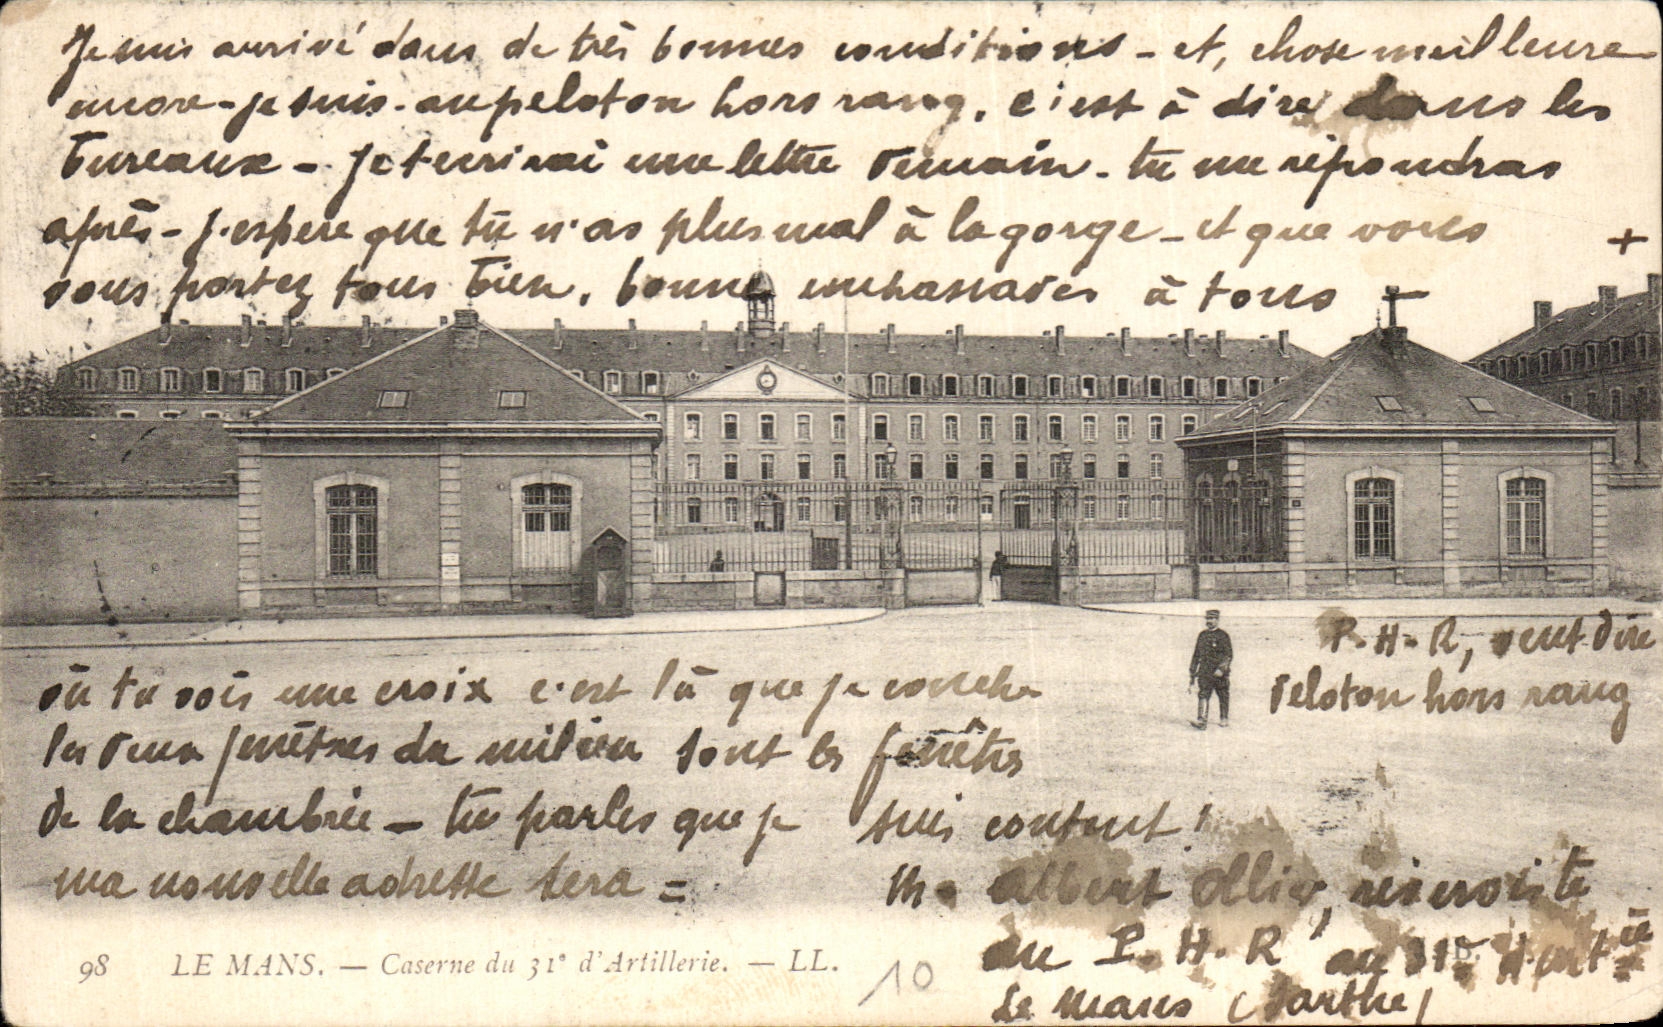 Je suis arrivé dans de très bonnes conditions - et, chose meilleure
encore - je suis au peloton hors rang, c'est à dire dans les
bureaux - je t'écrirai une lettre demain - tu me répondras
après - j'espère que tu n'as plus mal à la gorge - et que vous
vous portez tous bien. bonnes embrassades à tous
+
P.H.R, veut dire
peloton hors rang
où tu vois une croix c'est là que je couche
les deux fenêtres du milieu sont les fenêtres
de la chambrée - tu parles que je suis content !
ma nouvelle adresse sera =
M. Albert Ollier, réserviste
au P.H.R, au 31e d'art ie
Le Mans (Sarthe)
98 LE MANS. — Caserne du 31e d'Artillerie. — LL.
10